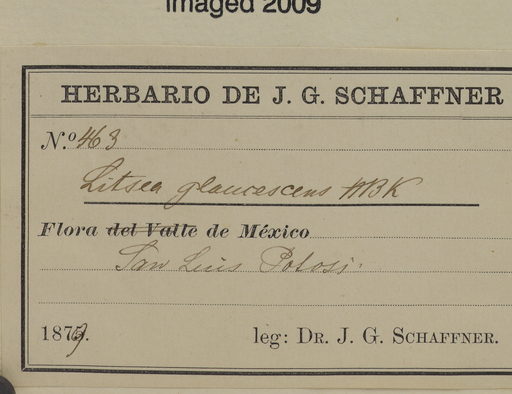 Imaged 2009
HERBARIO DE J. G. SCHAFFNER
N.º 463
Litsea glaucescens HBK
Flora del Valle de México
San Luis Potosi.
1879.
leg: DR. J. G. SCHAFFNER.